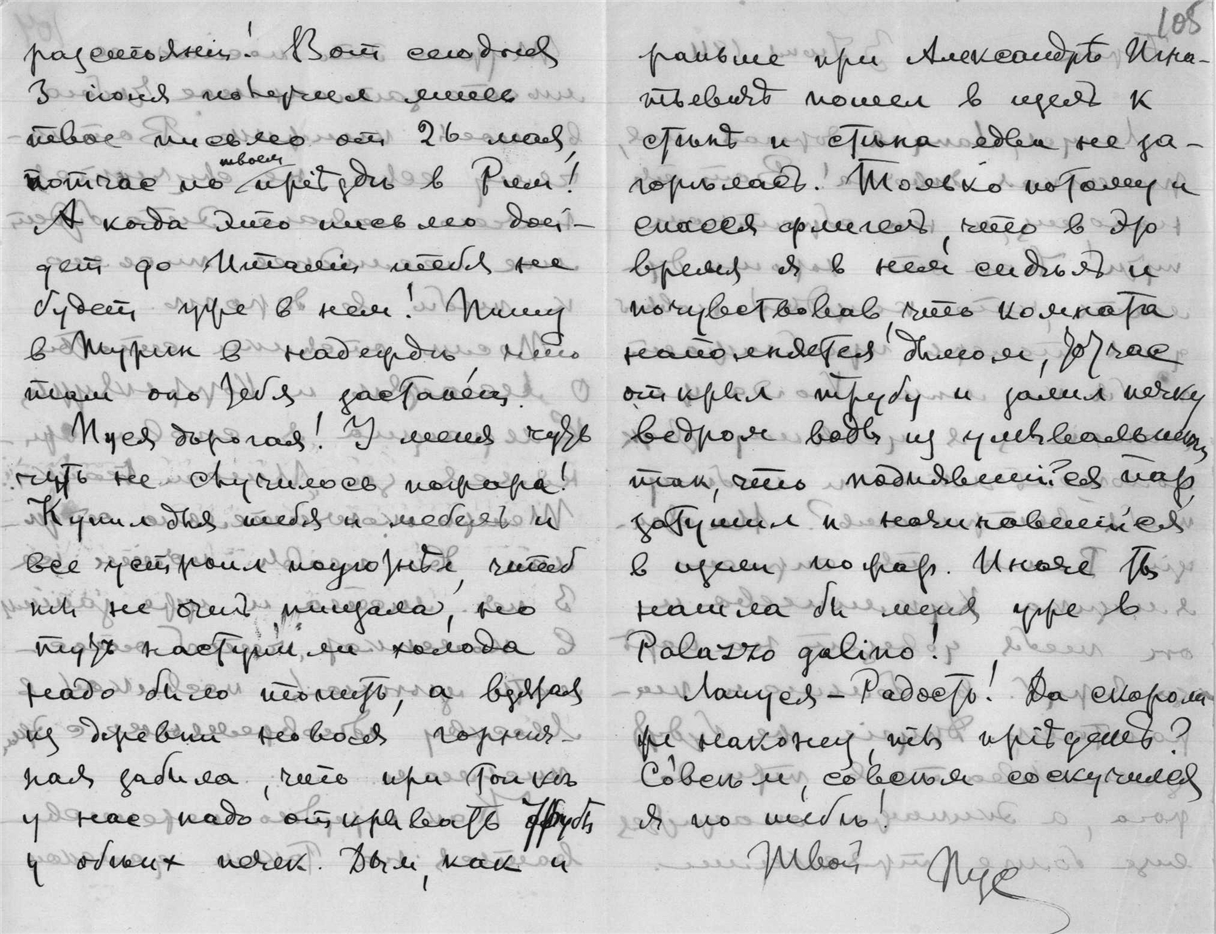 разстоянiи! Вот сегодня
3 июня получил лишь
твое письмо от 26 мая,
тотчас по твоем прiѣздѣ в Рим!
А когда это письмо дой-
дет до Италiи тебя не
будет уже в нем! Пишу
в Турин в надеждѣ что
там оно тебя застанет.
Пуся дорогая! У меня чуть
чуть не случилось пожара!
Купил для тебя и мебель и
все устроил поуютнѣе, чтоб
ты не очень пищала, но
тут наступили холода
надо было топить, а взятая
из деревни новая горнич-
ная забыла, что при топкѣ
у нас надо открывать трубы
у обѣих печек. Дым, как и
105
раньше при Александрѣ Игна-
тьевичѣ пошел в щель к
стѣнѣ и стѣна едва не за-
горѣлась. Только потому и
спасся флигель, что в это
время я в нем сидѣлъ и
почувствовав, что комната
наполняется дымом, тотчас
открыл трубу и залил печку
ведром воды из умывальника
так, что поднявшiйся пар
затушил и начинавшiйся
в щели пожар. Иначе ты
нашла бы меня уже в
Palazzo
Лапуся – Радость! Да скоро ли
же наконец, ты прiѣдешь?
Совсѣм, совсѣм соскучился
я по тебѣ!
Твой Пус